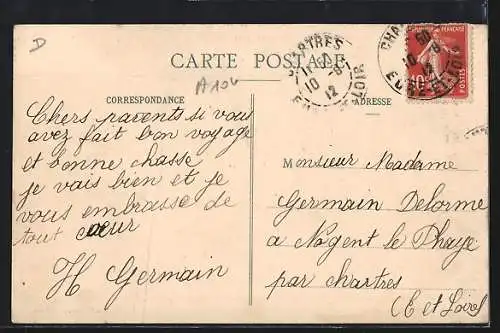 D
CARTE POSTALE
A106
CORRESPONDANCE
ADRESSE
CHARTRES
11 50
10 -8
12
EURE-ET-LOIR
10
POSTES
Chers parents si vous
avez fait bon voyage
et bonne chasse
je vais bien et je
vous embrasse de
tout cœur
H Germain
Monsieur Madame
Germain Delorme
a Nogent le Phaye
par chartres
(E et Loire)